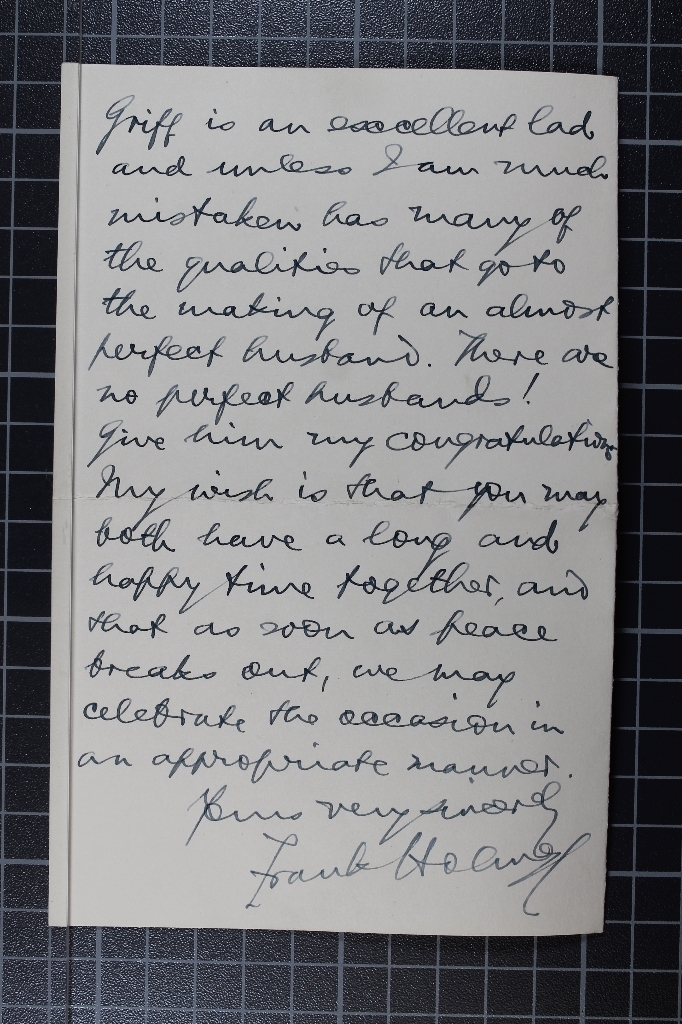 Griff is an excellent lad
and unless I am much
mistaken has many of
the qualities that go to
the making of an almost
perfect husband. There are
no perfect husbands!
Give him my congratulations
My wish is that you may
both have a long and
happy time together, and
that as soon as peace
breaks out, we may
celebrate the occasion in
an appropriate manner.
Yours very sincerely
Frank Holmes